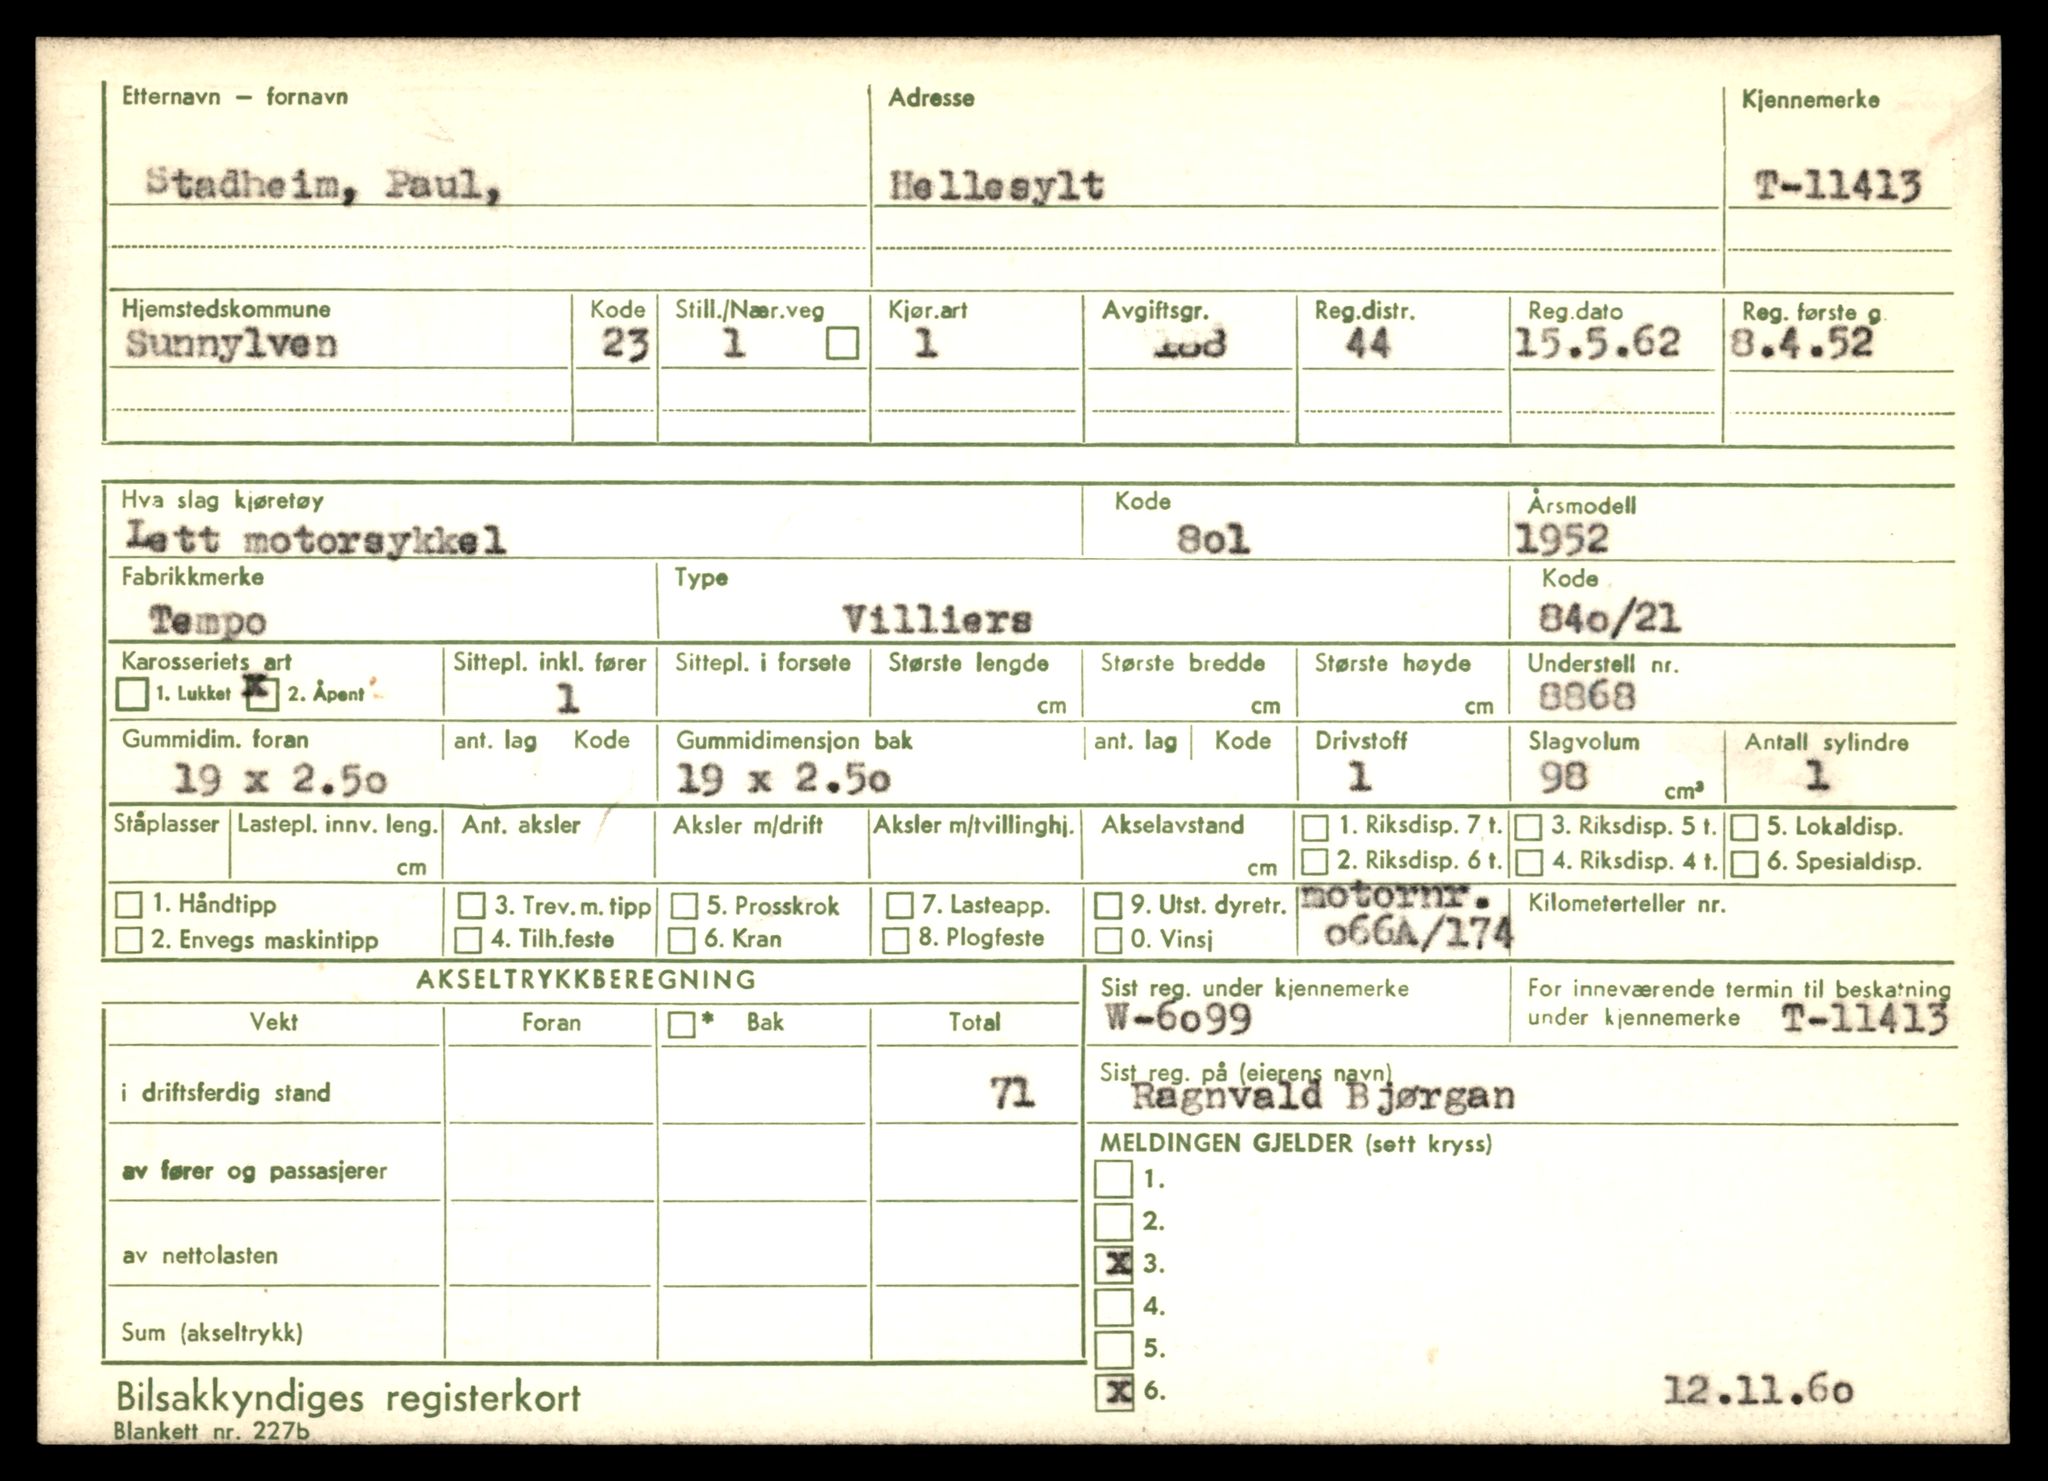 Etternavn – fornavn Adresse Kjennemerke
Stadheim, Paul, Hellesylt T-11413
Hjemstedskommune Kode Still./Nær.veg Kjør.art Avgiftsgr. Reg.distr. Reg.dato Reg. første g.
Sunnylven 23 1 1 44 15.5.62 8.4.52
Hva slag kjøretøy Kode Årsmodell
Lett motorsykkel 8o1 1952
Fabrikkmerke Type Kode
Tempo Villiers 84o/21
Karosseriets art Sittepl. inkl. fører Sittepl. i forsete Største lengde Største bredde Største høyde Understell nr.
1. Lukket x 2. Åpent 1 cm cm cm 8868
Gummidim. foran ant. lag Kode Gummidimensjon bak ant. lag Kode Drivstoff Slagvolum Antall sylindre
19 x 2.5o 19 x 2.5o 1 98 cm³ 1
Ståplasser Lastepl. innv. leng. Ant. aksler Aksler m/drift Aksler m/tvillinghj. Akselavstand 1. Riksdisp. 7 t. 3. Riksdisp. 5 t. 5. Lokaldisp.
cm cm 2. Riksdisp. 6 t. 4. Riksdisp. 4 t. 6. Spesialdisp.
1. Håndtipp 3. Trev. m. tipp 5. Prosskrok 7. Lasteapp. 9. Utst. dyretr. motornr. Kilometerteller nr.
2. Envegs maskintipp 4. Tilh.feste 6. Kran 8. Plogfeste 0. Vinsj o66A/174
AKSELTRYKKBEREGNING Sist reg. under kjennemerke For inneværende termin til beskatning
Vekt Foran * Bak Total W-6o99 under kjennemerke T-11413
i driftsferdig stand 71 Sist reg. på (eierens navn)
Ragnvald Bjørgan
av fører og passasjerer MELDINGEN GJELDER (sett kryss)
1.
2.
av nettolasten x 3.
4.
Sum (akseltrykk) 5.
x 6. 12.11.6o
Bilsakkyndiges registerkort
Blankett nr. 227b